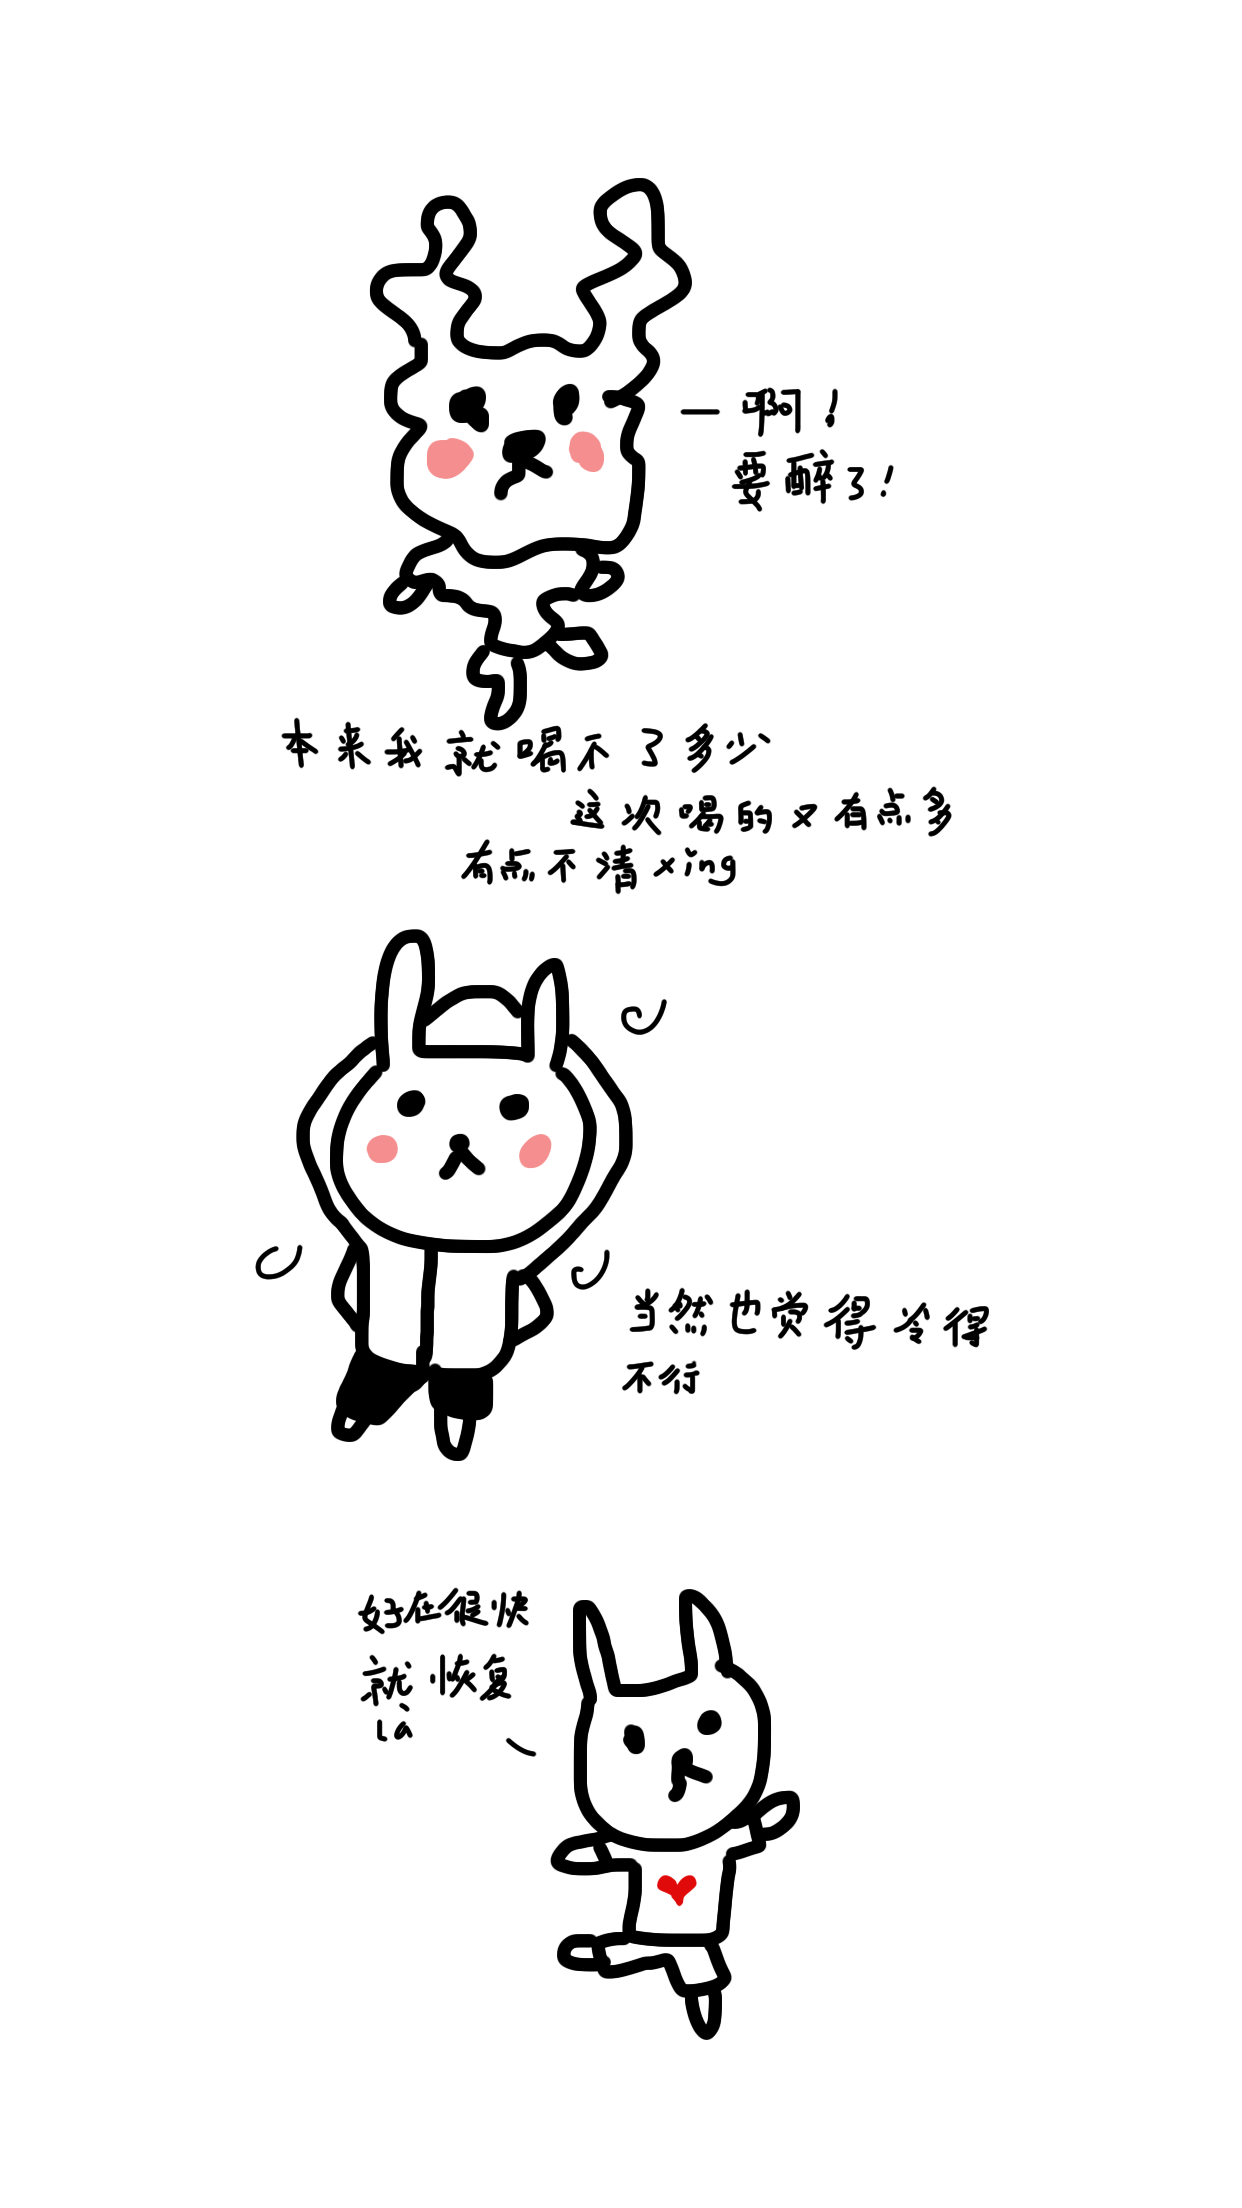 啊!
要醉了!
本来我就喝不了多少
这次喝的又有点多
有点不清xing
当然也觉得冷得
不行
好在很快
就恢复
là